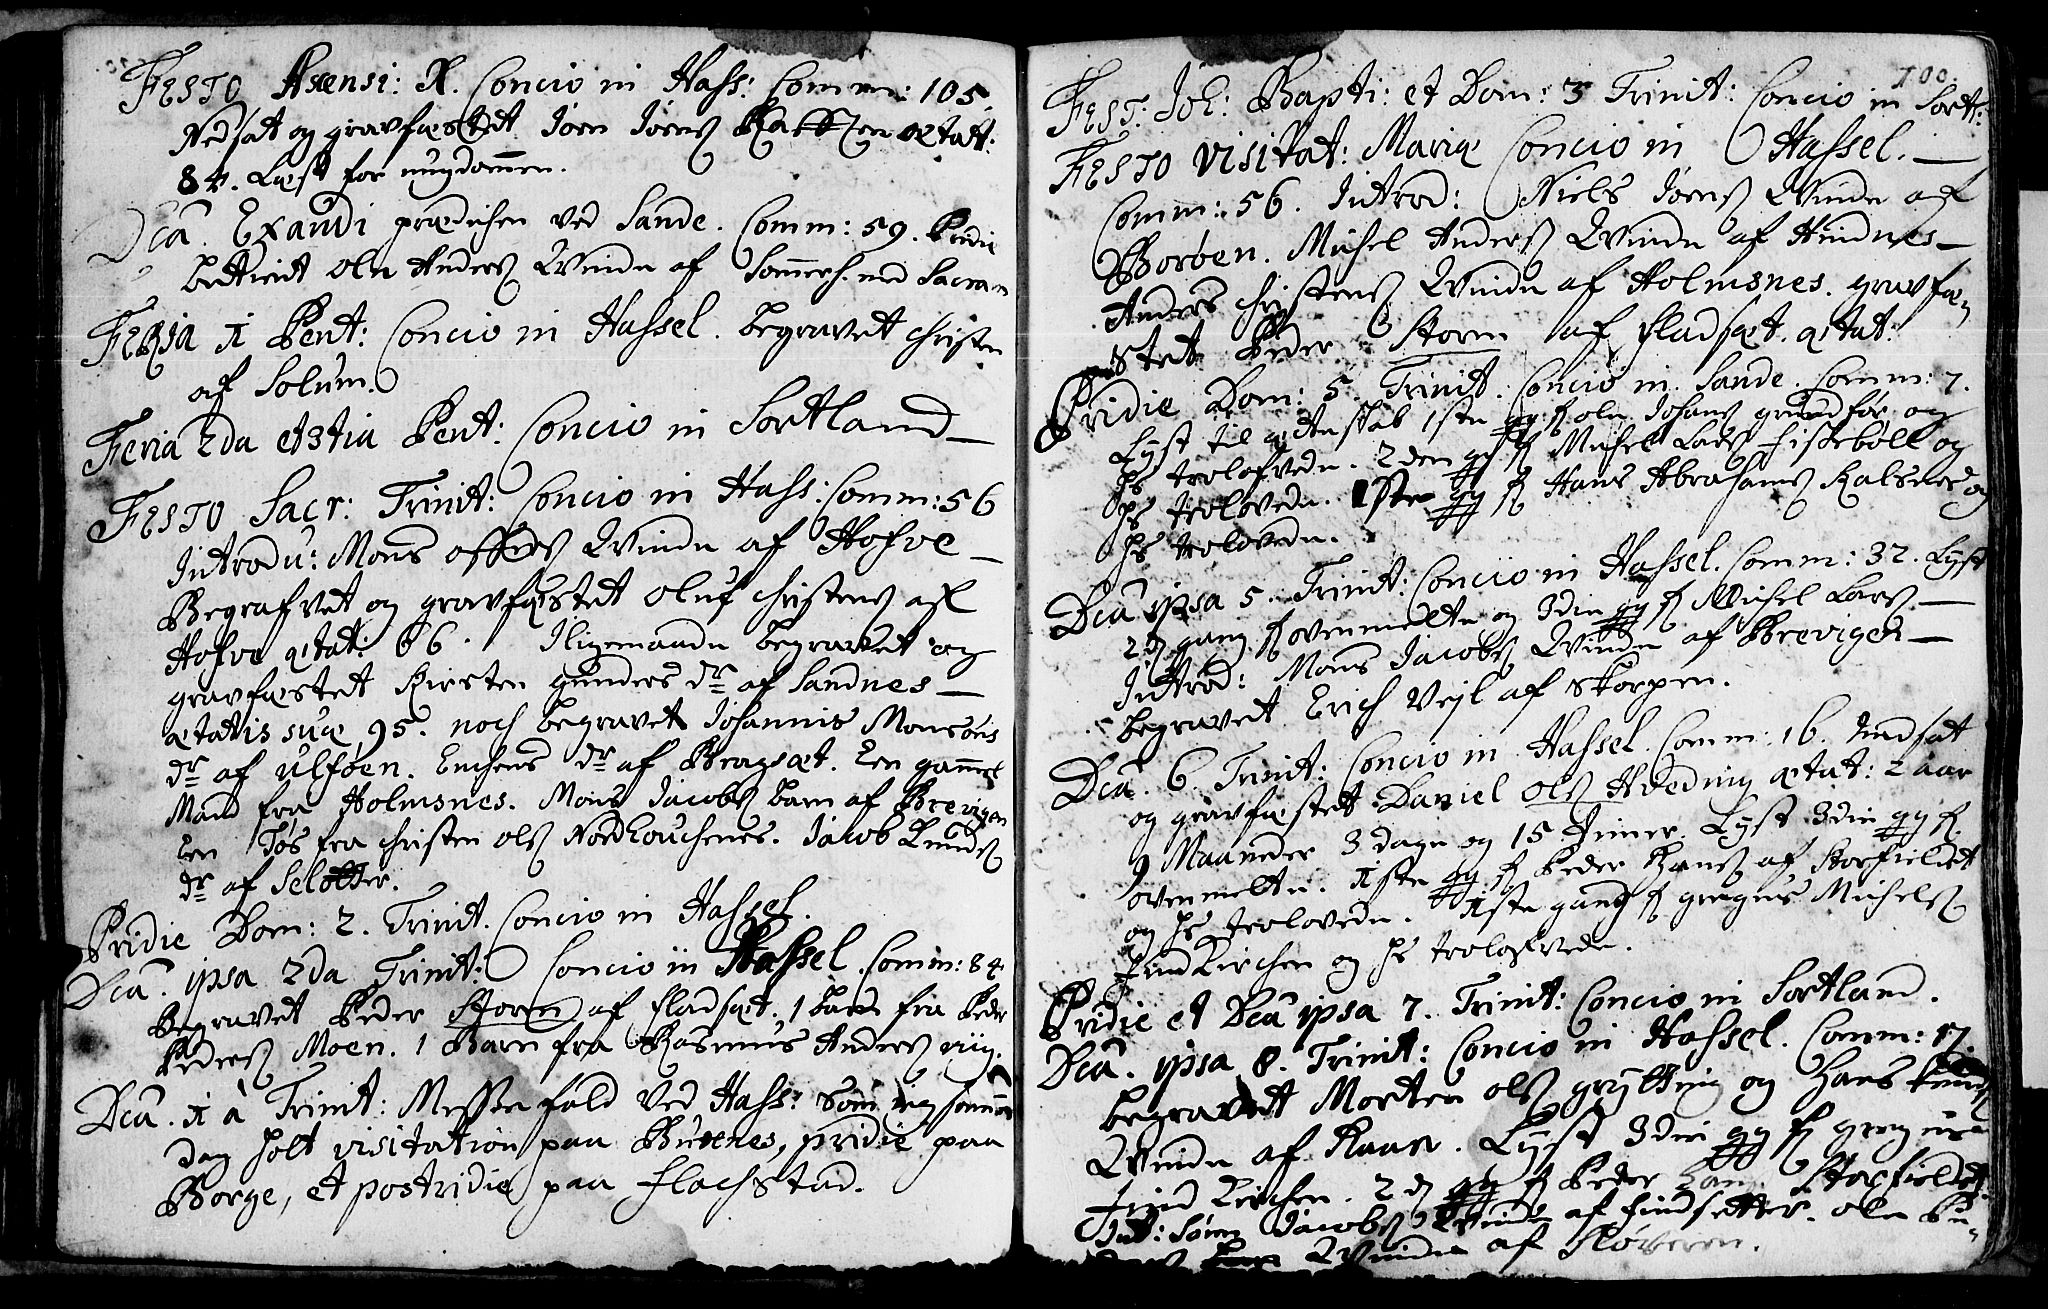 FESTO Asxensi: X. Concio in Hass: Comm: 105.
Nedsat og gravfæstet Joen Joens Ratzen ætat:
84. Læst for ungdommen.
Dca. Exaudi prædichen ved Sande. Comm: 59. Pridie
betient Ole Anders Qvinde af Sommerh. med Sacram
FERIA 1 Pent: Concio in Hassel. begravet Christen
af Solum.
Feria 2da et 3tia Pent: Concio in Sortland
FESTO Sacr: Trinit: Concio in Hass: Comm: 56
Introdu: Mons Qvinde af Hofve
Begrafvet og gravfæstet Oluf Christens af
Hofve ætat: 66. Iligemaade begravet og
gravfæstet Kirsten Gunders dr af Sandnes
ætatis suæ 95. noch begravet Johannis Monsøns
dr af Ulføen. Enchens dr af Bragsæt. Een gammel
Mand fra Holmsnes. Mons Jacobs barn af Brevigen
Een Tøs fra Christen Ols Nordtouchenes. Jacob Knuds
dr af Selotter.
Pridie Dom: 2. Trinit. Concio in Hassel.
Dca. ipsa 2da Trinit: Concio in Hassel. Comm: 84
Begravet Peder Storm af Fladsæt. 1 barn fra Peder
Peders Moen. 1 Barn fra Rasmus Anders
Dca. 11 à Trinit: Messe fald ved Hass: som jeg samme
dag holt visitation paa Buxnes, pridie paa
Borge, et postridie paa Flachstad.
100.
FEST: Joh: Bapti: et Dom: 3 Trinit: Concio in Sortl:
FESTO visitat: Mariæ Concio in Hassel.
Comm: 56. Introd: Niels Joens Qvinde af
Borøen. Michel Anders Qvinde af Hindnes
Anders Christens Qvinde af Holmsnes. gravfæ
stet Peder Storm af Fladsæt. ætat:
Pridie Dom: 5. Trinit. Concio in Sande. Comm: 7.
Lyst til ægteskab 1ste gg f Ole Johans Grundfør og
hs trolofvede. 2den gg f Michel Lars Fiskebøll og
hs trolovede. 1ste gg f Hans Abrahams Kalsnes og
hs trolovede.
Dca ipsa 5. Trinit: Concio in Hassel. Comm: 32. Lyst
2den gang f ovenmelte og 3die gg f Michel Lars
Introd: Mons Jacobs Qvinde af Brevigen
begravet Erich Vejl af Skorpen.
Dca. 6. Trinit: Concio in Hassel. Comm: 16. Indsat
og gravfæstet Daniel Ols Hveding ætat: 2 aar
9 Maaneder 3 dage og 15 Timer. Lyst 3die gg f.
ovenmelte. 1ste gg f Peder Hans af Storfieldet
og hs trolovede. 1ste gang f Gregus Michels
Find Kirchen og hs trolofvede.
Pridie et Dca ipsa 7. Trinit: Concio in Sortland.
Dca. ipsa 8. Trinit: Concio in Hassel. Comm: 17.
begravet Morten Ols Grytting og Hans Knuds
Qvinde af Raar. Lyst 3die gg f Gregus
Find Kirchen. 2den gg f Peder Hans Storfieldet
Int: Søren Jacobs Qvinde af Findsetter. Ole Pe-
ders Qvinde af Fløveren.